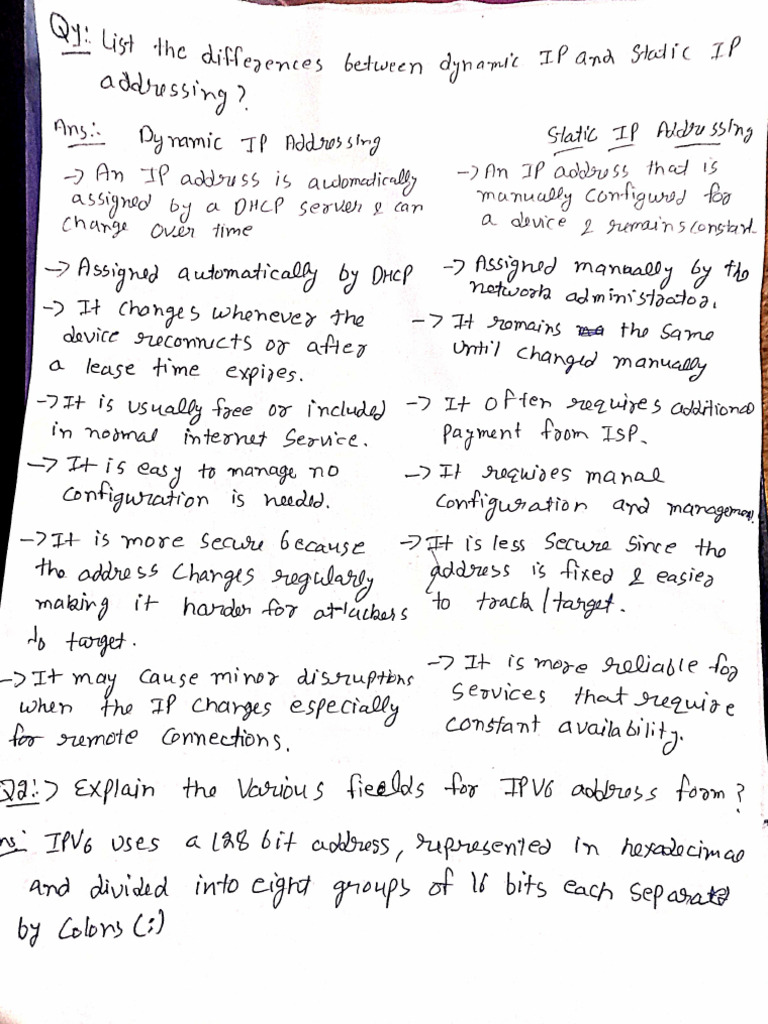 Q1: List the differences between dynamic IP and Static IP
addressing?
Ans: Dynamic IP Addressing
→ An IP address is automatically
assigned by a DHCP server & can
change over time
→ Assigned automatically by DHCP
→ It changes whenever the
device reconnects or after
a lease time expires.
→ It is usually free or included
in normal internet service.
→ It is easy to manage no
configuration is needed.
→ It is more secure because
the address changes regularly
making it harder for attackers
to target.
→ It may cause minor disruptions
when the IP changes especially
for remote connections.
Static IP Addressing
→ An IP address that is
manually configured for
a device & remains constant
→ Assigned manually by the
network administrator.
→ It remains the same
until changed manually
→ It often requires additional
payment from ISP.
→ It requires manal
configuration and management.
→ It is less secure since the
address is fixed & easier
to track/target.
→ It is more reliable for
services that require
constant availability.
Q2: → Explain the various fields for IPV6 address form?
ns: IPV6 uses a 128 bit address, represented in hexadecimal
and divided into eight groups of 16 bits each separated
by Colons (:)